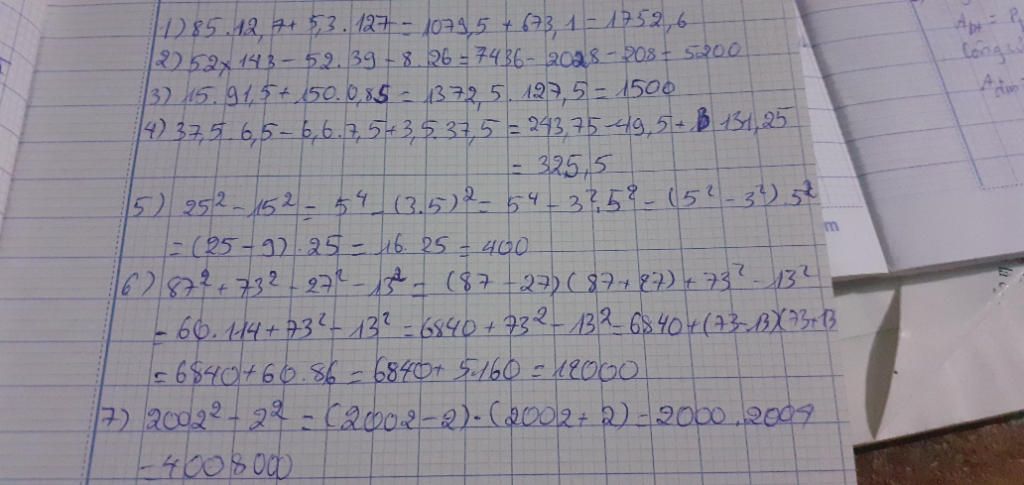 1) 85.12,7+5,3.127=1079,5+673,1=1752,6
2) 52×143-52.39-8.26=7436-2028-208=5200
3) 15.91,5+150.0,85=1372,5.127,5=1500
4) 37,5.6,5-6,6.7,5+3,5.37,5=243,75-49,5+131,25
=325,5
5) 25²-15²=5⁴-(3.5)²=5⁴-3².5²=(5²-3²).5²
=(25-9).25=16.25=400
6) 87²+73²-27²-13²=(87-27)(87+27)+73²-13²
=60.114+73²-13²=6840+73²-13²=6840+(73-13)(73+13
=6840+60.86=6840+5160=12000
7) 2002²-2²=(2002-2).(2002+2)=2000.2004
=400800
A
Công